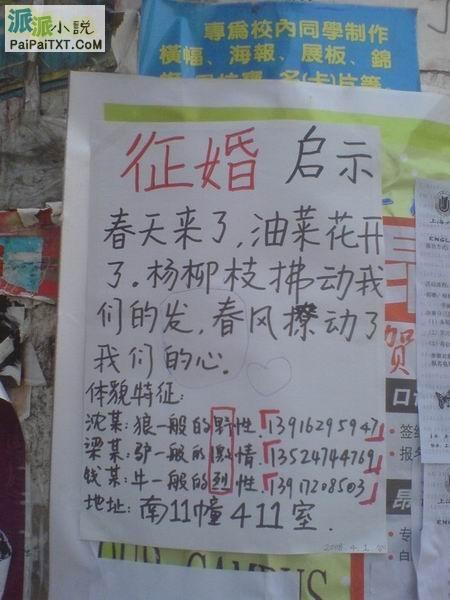 派派小说
PaiPaiTXT.Com
專為校內同學制作
橫幅、海報、展板、錦
征婚 启示
春天来了,油菜花开
了.杨柳枝拂动我
们的发,春风撩动了
我们的心.
体貌特征:
沈某:狼一般的野性.「13916295947」
梁某:驴一般的激情.「13524744769」
钱某:牛一般的烈性.「13917208503」
地址:南11幢411室.
2008.4.1
贺
口
签
报名
昂
专
白
OUR CAMPUS
ENGL